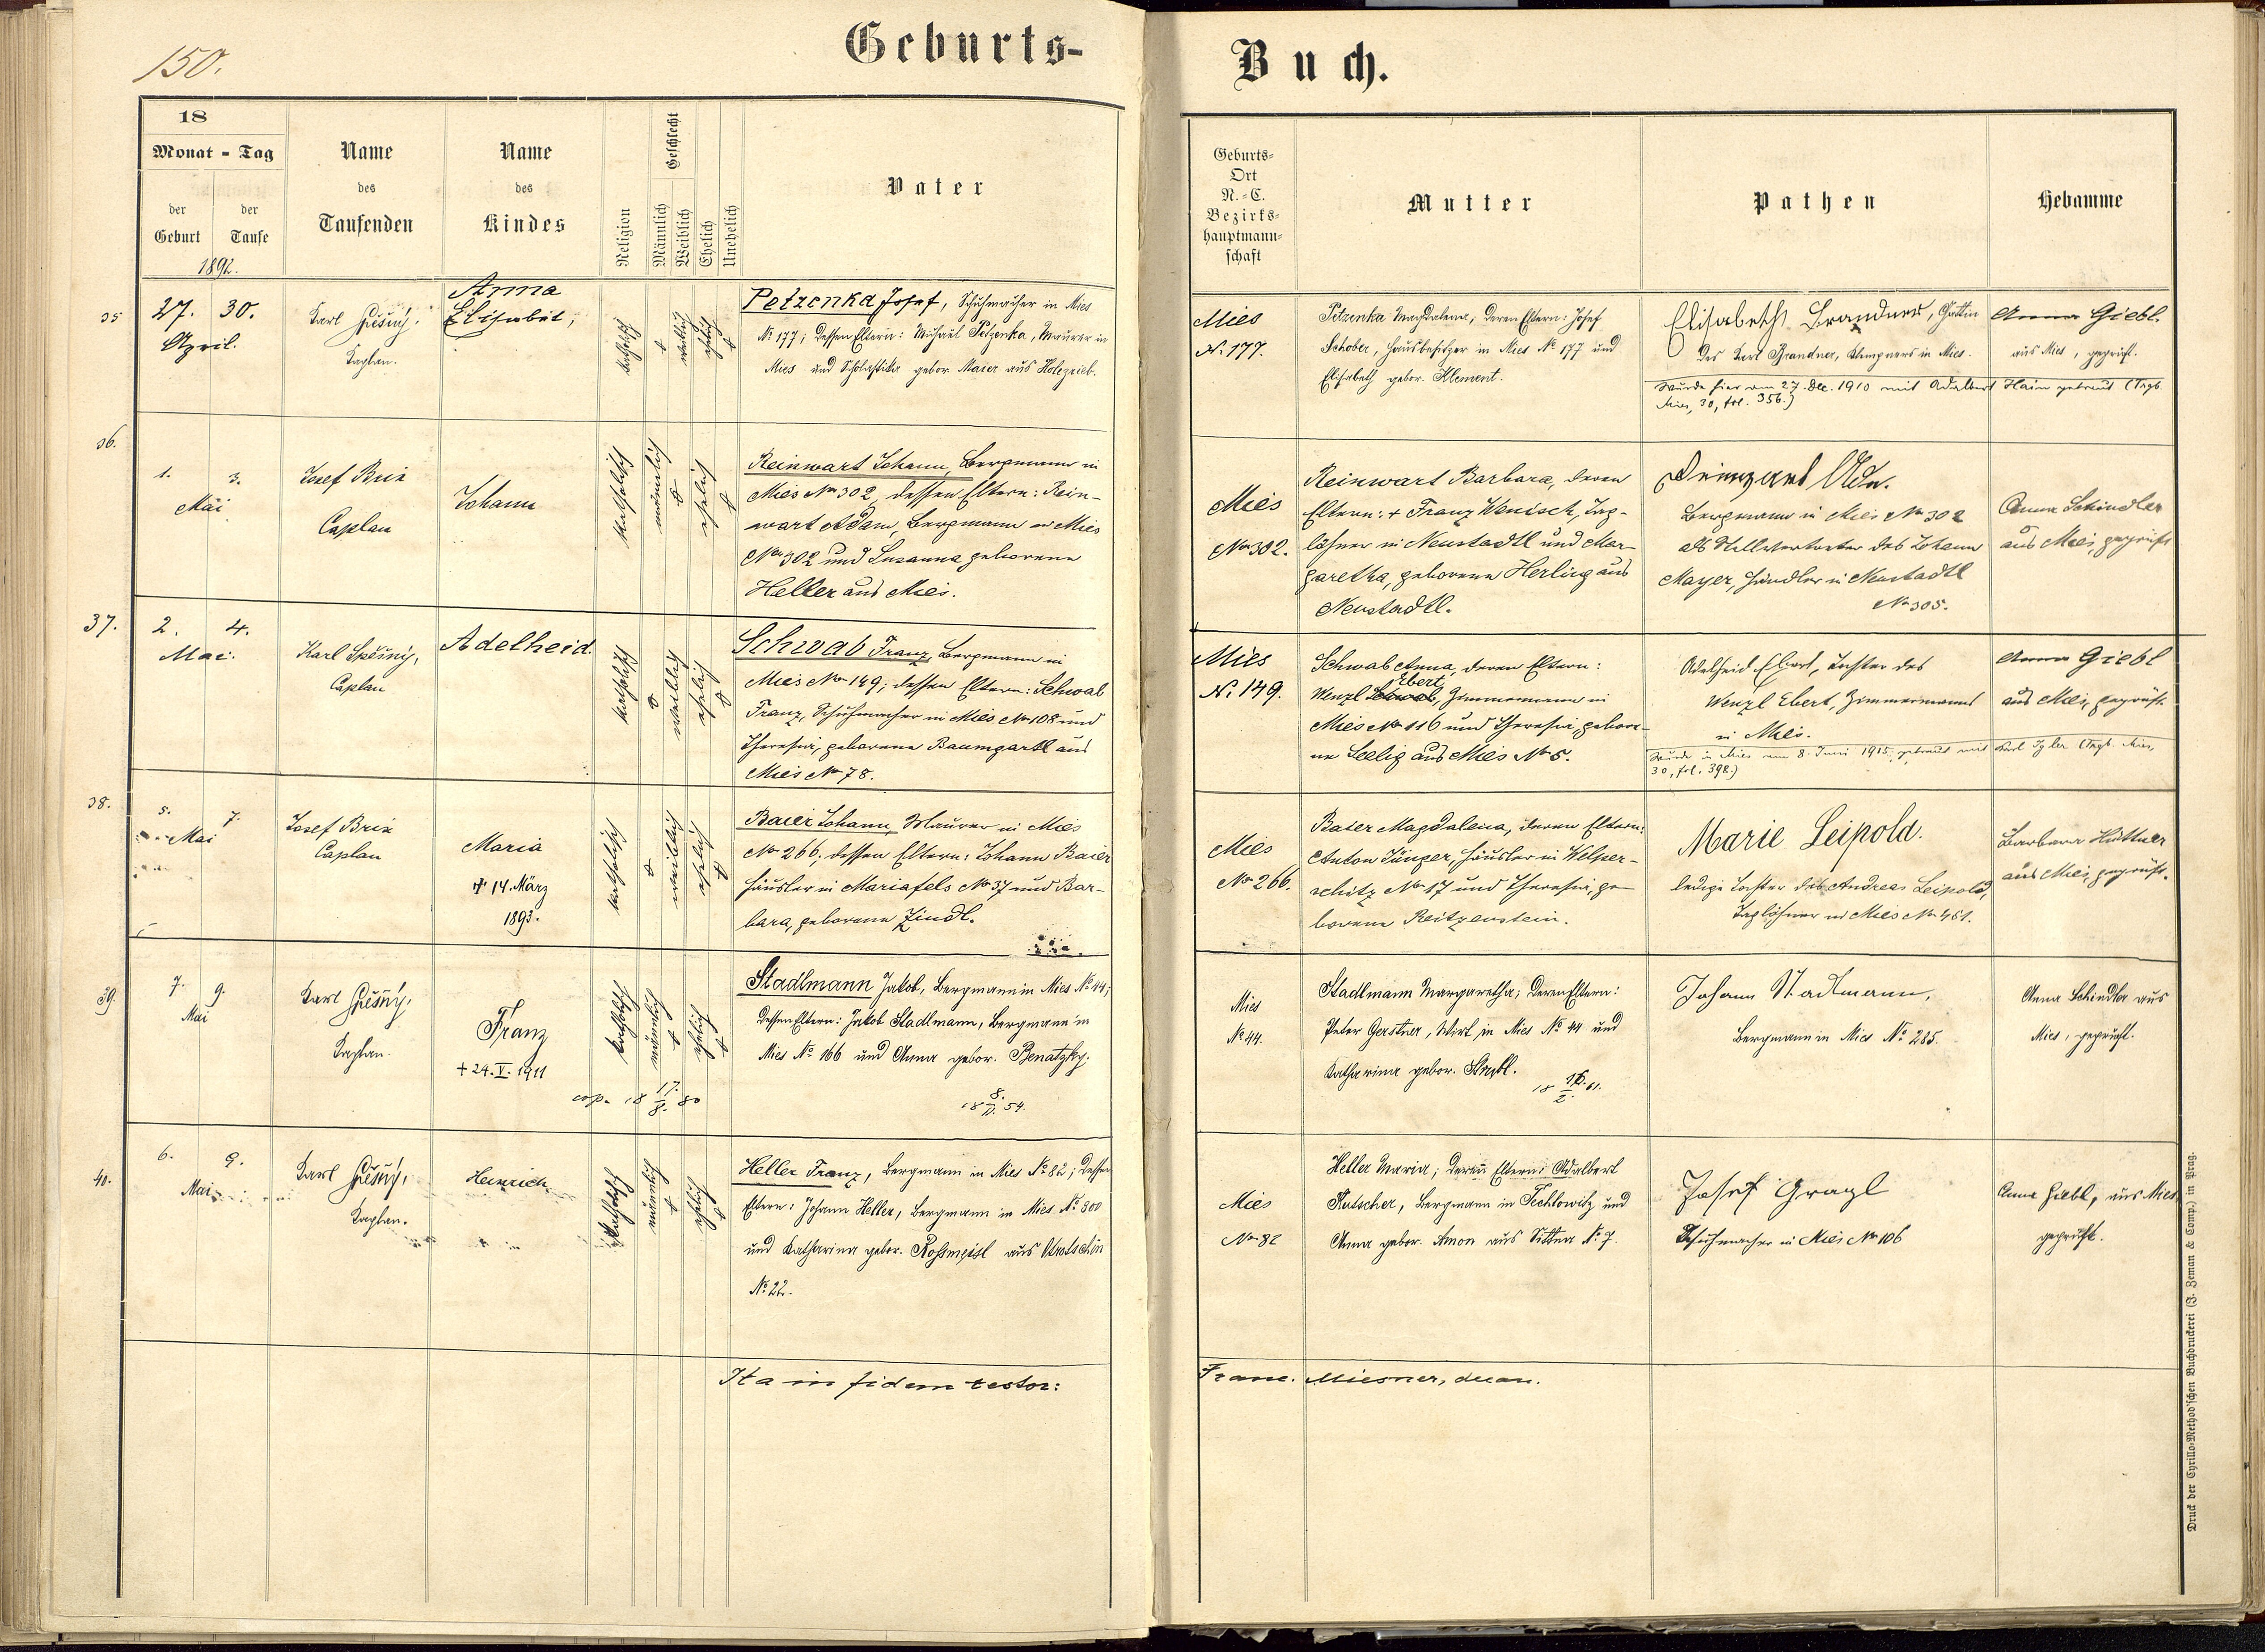 150.
Geburts-
Buch.
18
Monat - Tag
der Geburt
der Taufe
1892.
Name des Taufenden
Name des Kindes
Religion
Geschlecht
Männlich
Weiblich
Ehelich
Unehelich
Vater
Geburts-
Ort
N.-C.
Bezirks-
hauptmann-
schaft
Mutter
Pathen
Hebamme
35
27. 30.
April.
Karl
Kaplan.
Anna
Elisabet,
katholisch
weiblich
ehelich
Petzenka Josef, Schuhmacher in Mies
No 177; dessen Eltern: Michael Petzenka, Maurer in
Mies und Scholastika gebor. Maier aus Holezrieb.
Mies
No 177.
Petzenka Magdalena, deren Eltern: Josef
Schober, Hausbesitzer in Mies No 177 und
Elisabeth gebor. Klement.
Elisabeth Brandner, Gattin
des Karl Brandner, Klempners in Mies.
Wurde hier am 27. Dec. 1910 mit Adalbert Hain getraut (Trgb.
Mies, 30, fol. 356.)
Anna Giebl.
aus Mies, geprüft.
36.
1. 3.
Mai
Josef Brix
Caplan
Johann
katholisch
männlich
ehelich
Reinwart Johann, Bergmann in
Mies No 302, dessen Eltern: Rein-
wart Adam, Bergmann in Mies
No 302 und Susanna geborene
Heller aus Mies.
Mies
No 302.
Reinwart Barbara, deren
Eltern: + Franz Wenisch, Tag-
löhner in Neustadtl und Mar-
garetha, geborene Herling aus
Neustadtl.
Bergmann in Mies No 302
als Stellvertreter des Johann
Mayer, Händler in Neustadtl
No 305.
Anna Schindler
aus Mies, geprüft
37.
2. 4.
Mai.
Karl Spěšný,
Caplan
Adelheid.
katholisch
weiblich
ehelich
Schwab Franz, Bergmann in
Mies No 149; dessen Eltern: Schwab
Franz, Schuhmacher in Mies No 108 und
Theresia, geborene Baumgartl aus
Mies No 78.
Mies
No 149.
Schwab Anna, deren Eltern:
Ebert
Wenzl Schwab, Zimmermann in
Mies No 116 und Theresia, gebore-
ne Seelig aus Mies No 5.
Adelheid Ebert, Tochter des
Wenzl Ebert, Zimmermanns
in Mies.
Wurde in Mies am 8. Juni 1915 getraut mit Karl (Trgb. Mies,
30, fol. 398.)
Anna Giebl
aus Mies, geprüft.
38.
5. 7.
Mai
Josef Brix
Caplan
Maria
+ 14. März
1893.
katholisch
weiblich
ehelich
Baier Johann, Maurer in Mies
No 266; dessen Eltern: Johann Baier
Häusler in Mariafels No 37 und Bar-
bara, geborene Zindl.
Mies
No 266.
Baier Magdalena, deren Eltern:
Anton Jünger, Häusler in Welper-
schitz No 17 und Theresia, ge-
borene Reitzenstein.
Marie Leipold.
ledige Tochter des Andreas Leipold,
Taglöhner in Mies No 461.
Barbara Hüttner
aus Mies, geprüft.
39.
7. 9.
Mai
Karl Spěšný,
Kaplan.
Franz
+ 24. V. 1911
katholisch
männlich
ehelich
Stadlmann Jakob, Bergmann in Mies No 44;
dessen Eltern: Jakob Stadlmann, Bergmann in
Mies No 166 und Anna gebor. Benatzky.
cop. 18 17./8. 80
18 8. 54.
Mies
No 44.
Stadlmann Margaretha; deren Eltern:
Peter Gerstner, Wirt in Mies No 44 und
Katharina gebor.
18 61.
Johann Stadlmann,
Bergmann in Mies No 285.
Anna Schindler aus
Mies, geprüft.
40.
6. 9.
Mai
Karl Spěšný,
Kaplan.
Heinrich
katholisch
männlich
ehelich
Heller Franz, Bergmann in Mies No 82; dessen
Eltern: Johann Heller, Bergmann in Mies No 300
und Katharina gebor. Rossmeisl aus
No 22.
Mies
No 82
Heller Maria; deren Eltern: Adalbert
Kutscher, Bergmann in Techlowitz und
Anna gebor. Amon aus Sittna No 7.
Josef Gragl
Schuhmacher in Mies No 106
Anna Giebl, aus Mies
geprüft.
Ita in fidem testor:
Franc. Miesner, decan.
Druck der Cyrillo-Method'schen Buchdruckerei (J. Zeman & Comp.) in Prag.